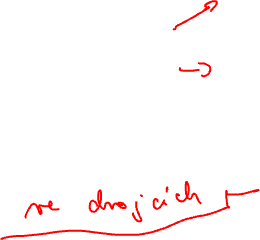 ve dvojcích